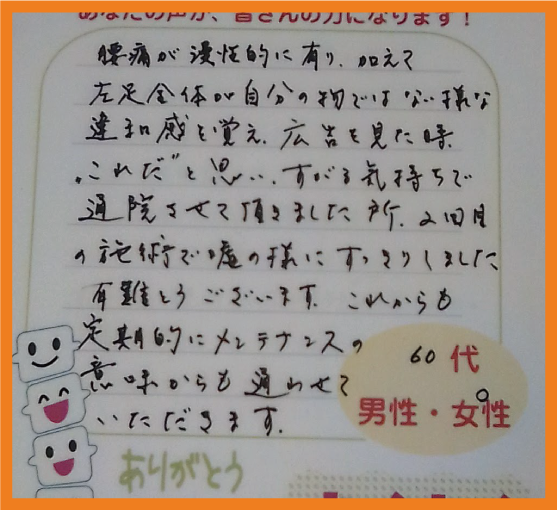 あなたの声が、皆さんの力になります！
腰痛が慢性的に有り、加えて
左足全体が自分の物ではない様な
違和感を覚え、広告を見た時、
"これだ"と思い、すがる気持ちで
通院させて頂きました所、2回目
の施術で嘘の様にすっきりしました
有難とうございます。これからも
定期的にメンテナンスの
意味からも通わせて
いただきます。
60代
男性・女性
ありがとう